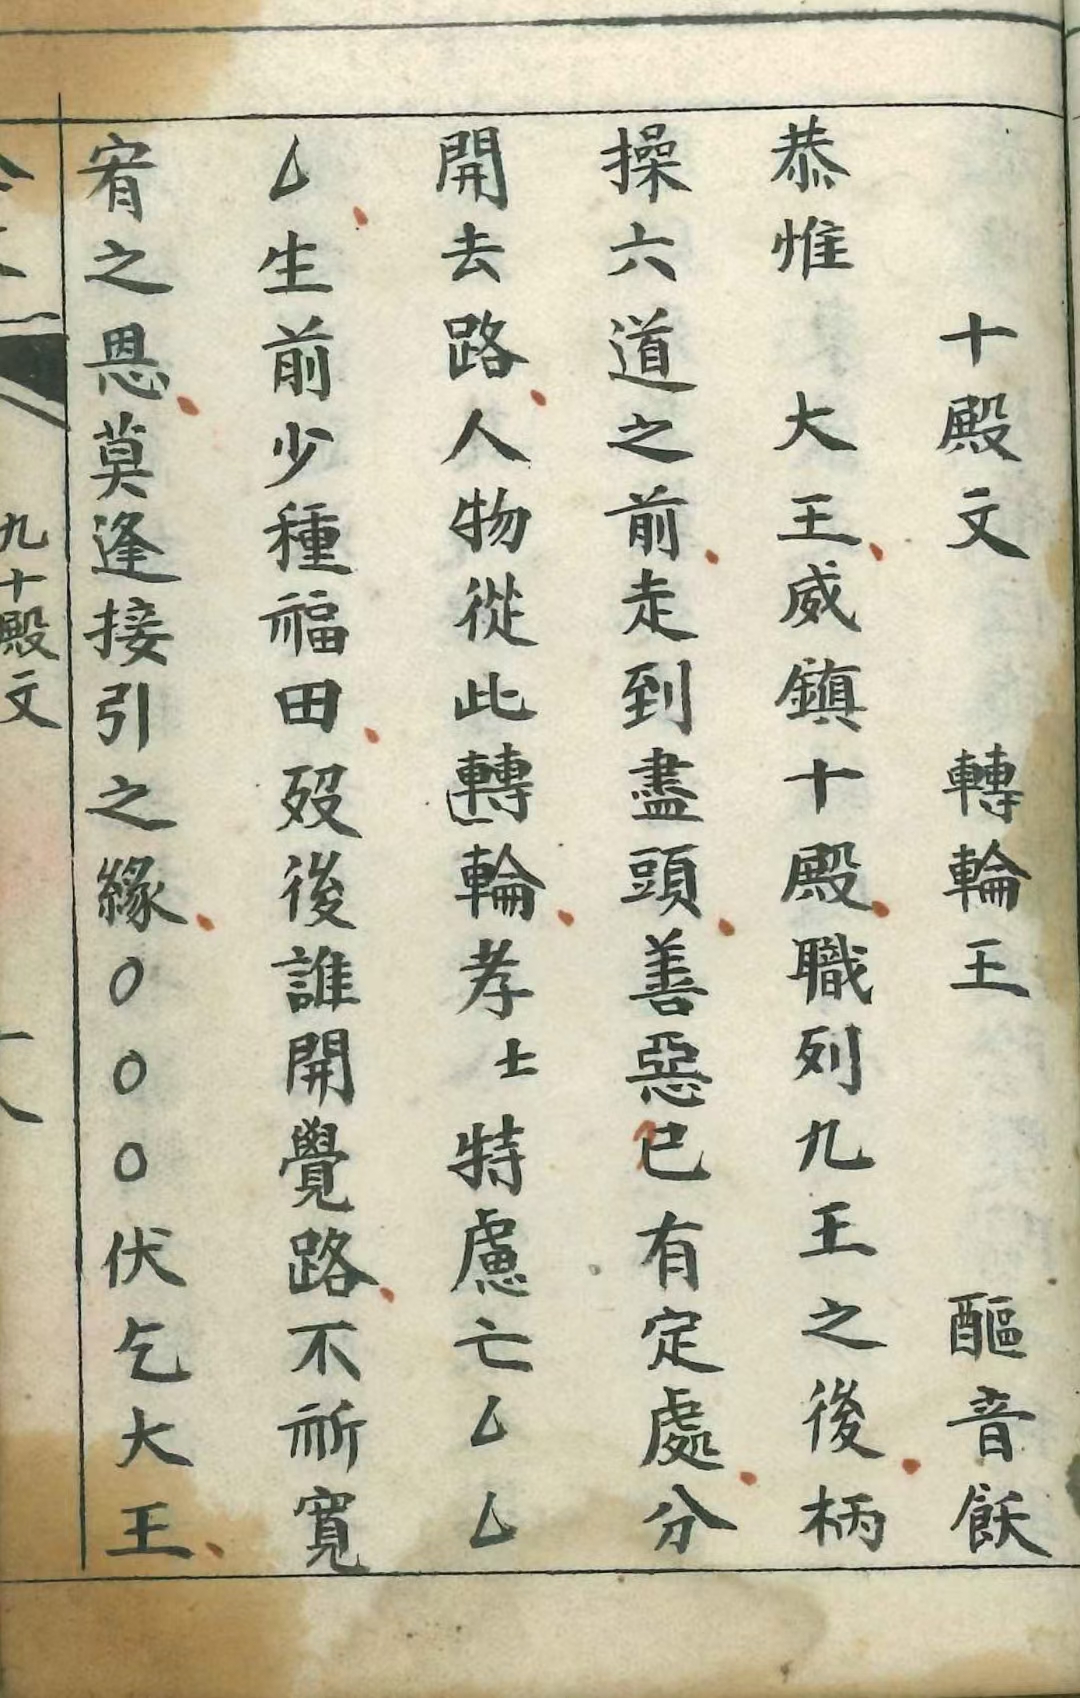 十殿文 轉輪王 醧音飫
恭惟 大王威鎮十殿職列九王之後柄
操六道之前走到盡頭善惡已有定處分
開去路人物從此轉輪孝士特慮亡厶厶
厶生前少種福田歿後誰開覺路不祈寬
宥之恩莫逢接引之緣〇〇〇伏乞大王
九十殿文